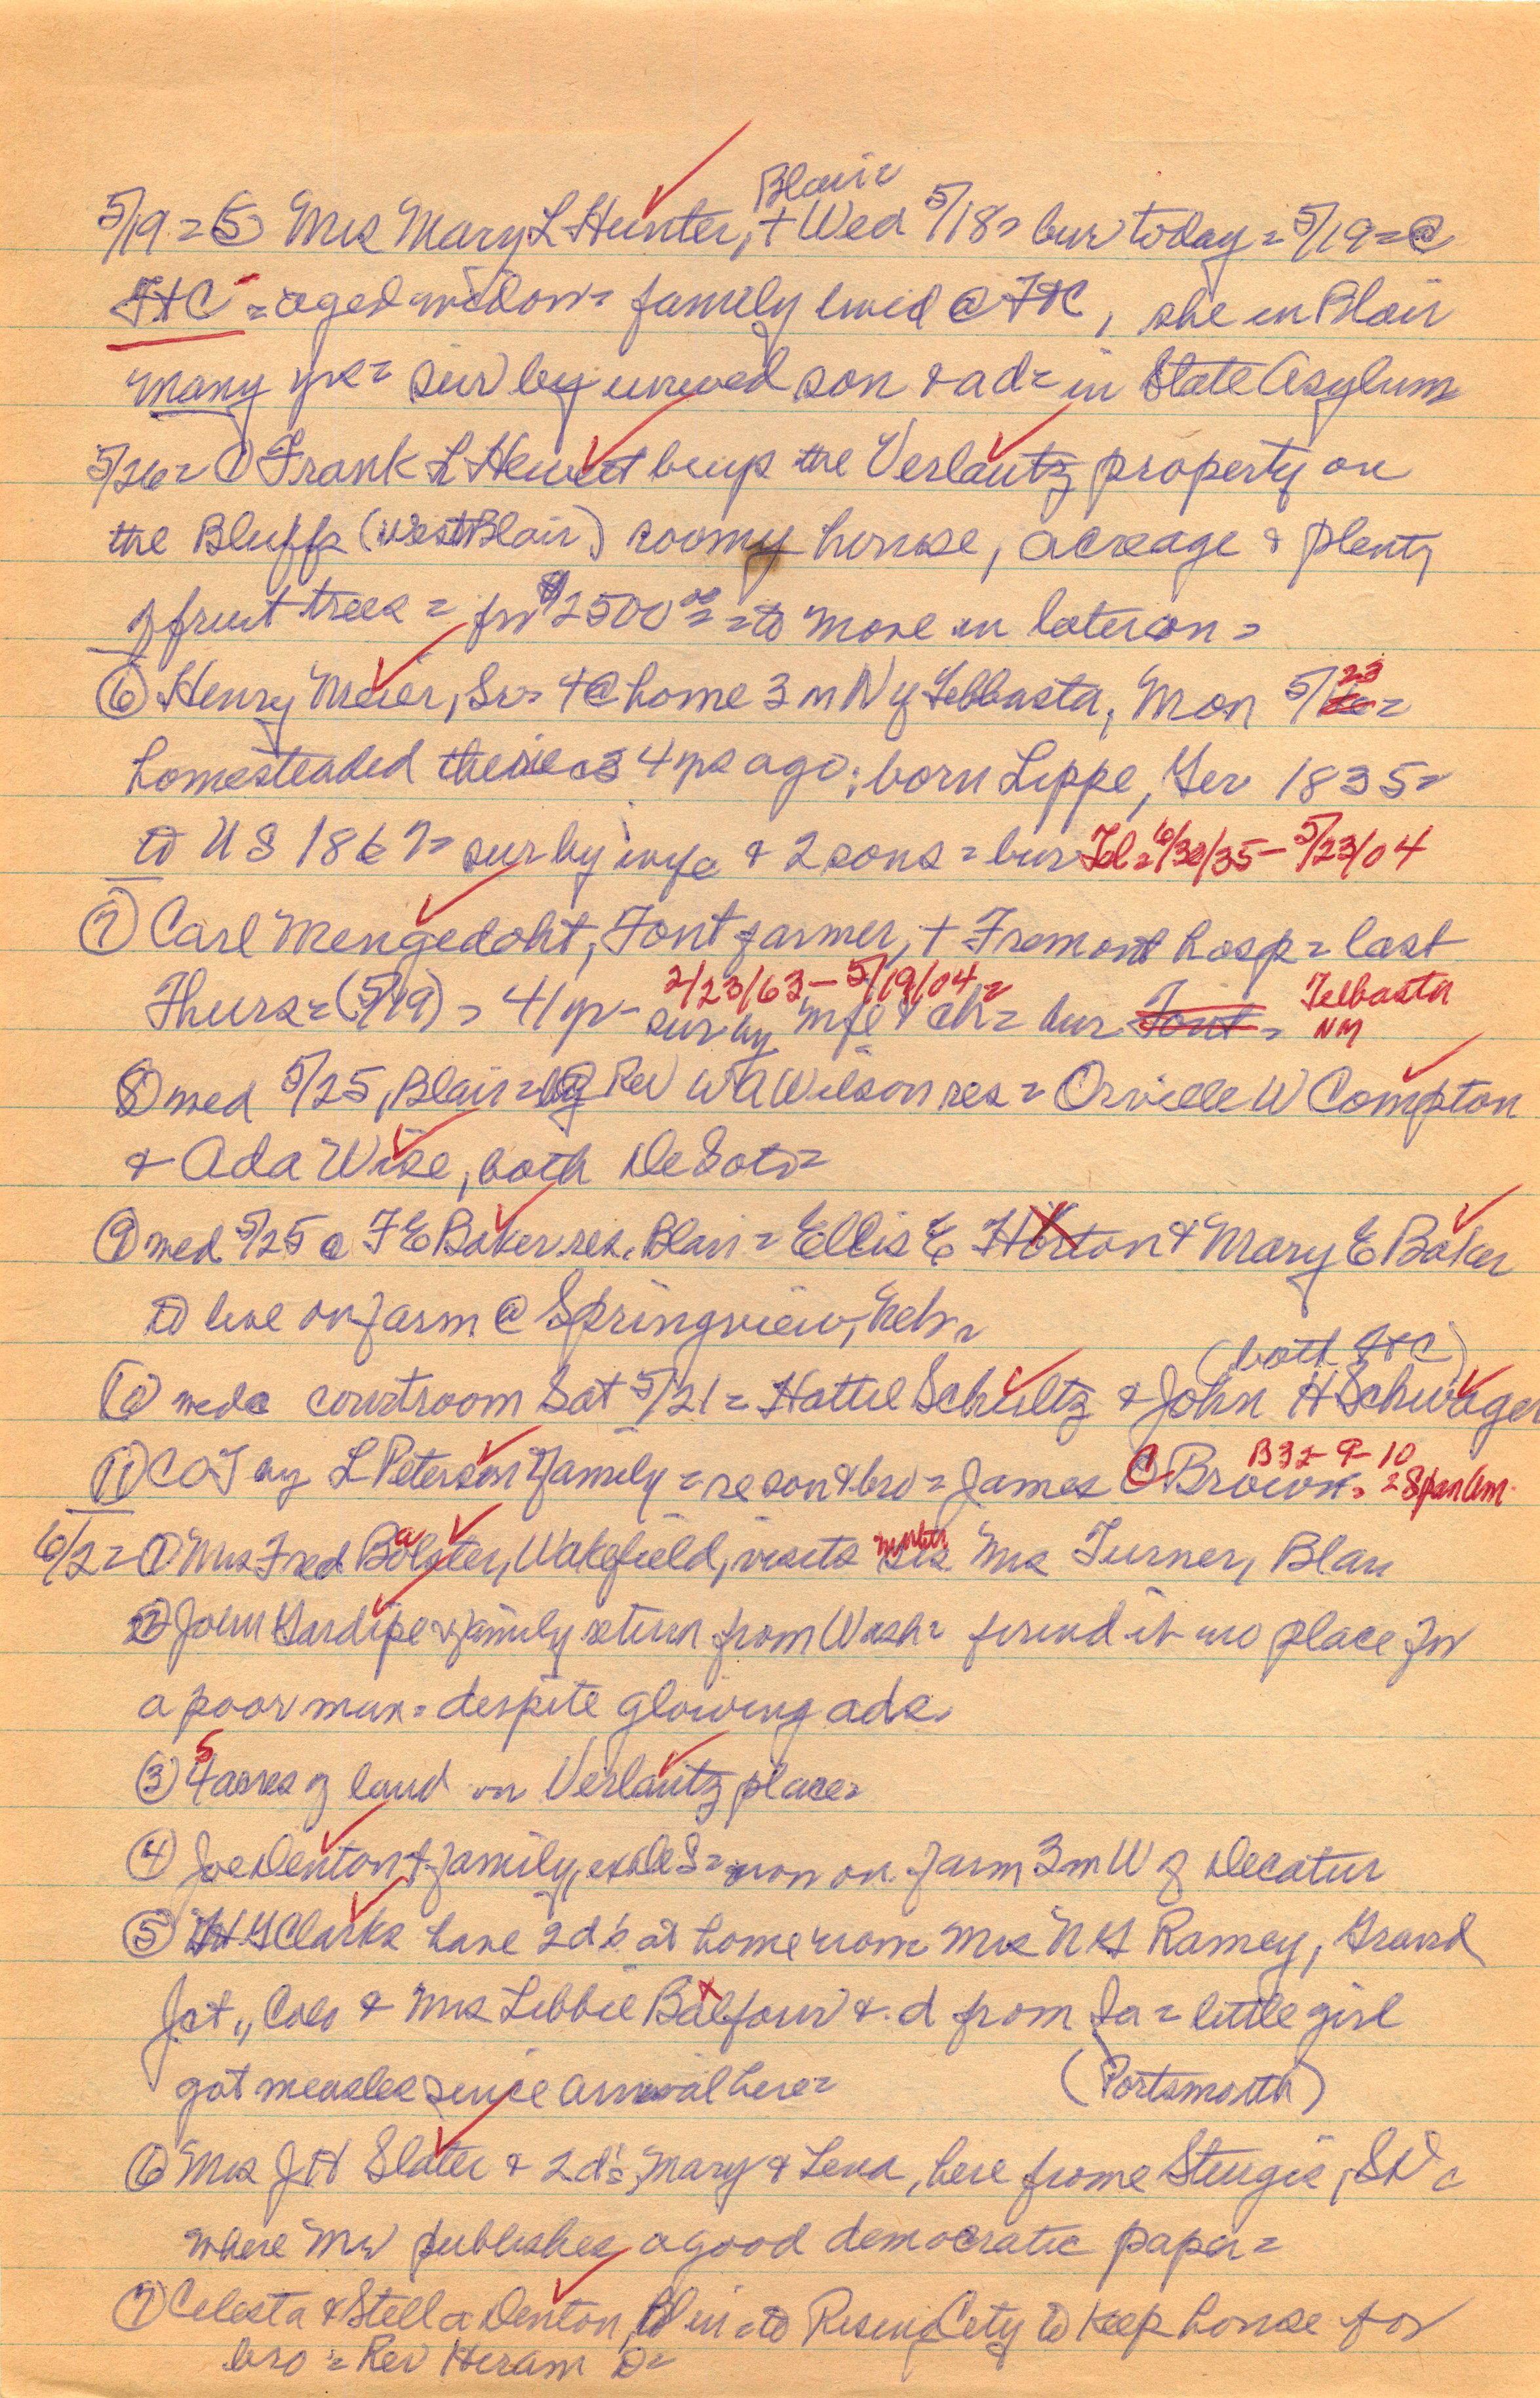 Blair=
5/19=⑤ Mrs Mary L Hunter, + Wed 5/18= bur today=5/19=@
FtC = aged widow= family lived @ FtC, she in Blair
many yrs= sur by unwed son + a d= in State Asylum
5/26=① Frank L Hewett buys the Verlautz property on
the Bluffs (West Blair) roomy house, acreage + plenty
of fruit trees = for $2500 00= =to move in later on=
⑥ Henry Meier, Sr= + @ home 3 m N of Telbasta, Mon 5/23=
homesteaded there 34 yrs ago; born Lippe, Ger 1835=
to US 1867= sur by wife + 2 sons = bur Tel= 6/30/35-5/23/04
⑦ Carl Mengedoht, Font farmer, + Fremont hosp= last
2/23/63-5/19/04=
Thurs=(5/19)= 41 yr- sur by wife + ch= bur Font= Telbasta
NM
⑧ wed 5/25, Blair= @ Rev W A Wilson res= Orville W Compton
+ Ada Wise, both DeSoto=
⑨ wed 5/25 @ F E Baker res. Blair= Ellis E Horton + Mary E Baker
to live on farm @ Springview, Neb=
(both FtC)
⑩ wed @ courtroom Sat 5/21= Hattie Schultz + John H Schwager
B32-9-10
⑪ C of T by L Peterson + family = re son + bro= James C Brown= =Span Am.
6/2=① Mrs Fred Balster, Wakefield, visits mother Mrs Turner, Blair
② John Gardipe + family return from Wash= found it no place for
a poor man= despite glowing ads.
③ 5 acres of land on Verlautz place=
④ Joe Denton + family, ex DeS= now on farm 3 m W of Decatur
⑤ H G Clarks have 2 d's at home now= Mrs N G Ramey, Grand
Jct., Colo + Mrs Libbie Balfour + d from Ia= little girl
got measles since arrival here= (Portsmouth)
⑥ Mrs J H Slater + 2 d's, Mary + Lena, here from Sturgis, SD=
where Mr publishes a good democratic paper=
⑦ Celesta + Stella Denton, Blair=to Rising City to keep house for
bro = Rev Hiram D=